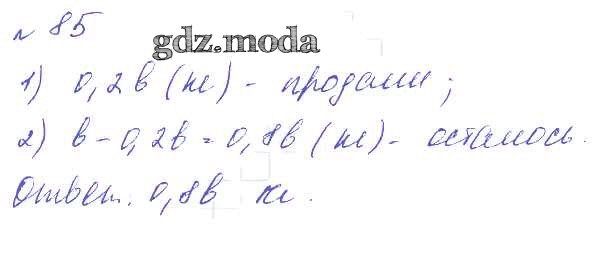 № 85
gdz.moda
1) 0,2в (кг) - продали;
2) в - 0,2в = 0,8в (кг) - осталось.
Ответ. 0,8в кг.